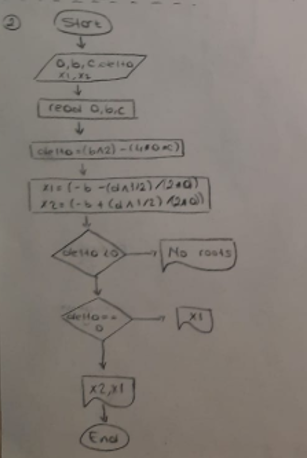 2
Start
a, b, c, delta
x1, x2
read a, b, c
delta=(b^2)-(4*a*c)
x1=(-b-(d^1/2)/2*a)
x2=(-b+(d^1/2)/2*a)
delta<0
No roots
delta==
0
x1
x2,x1
End